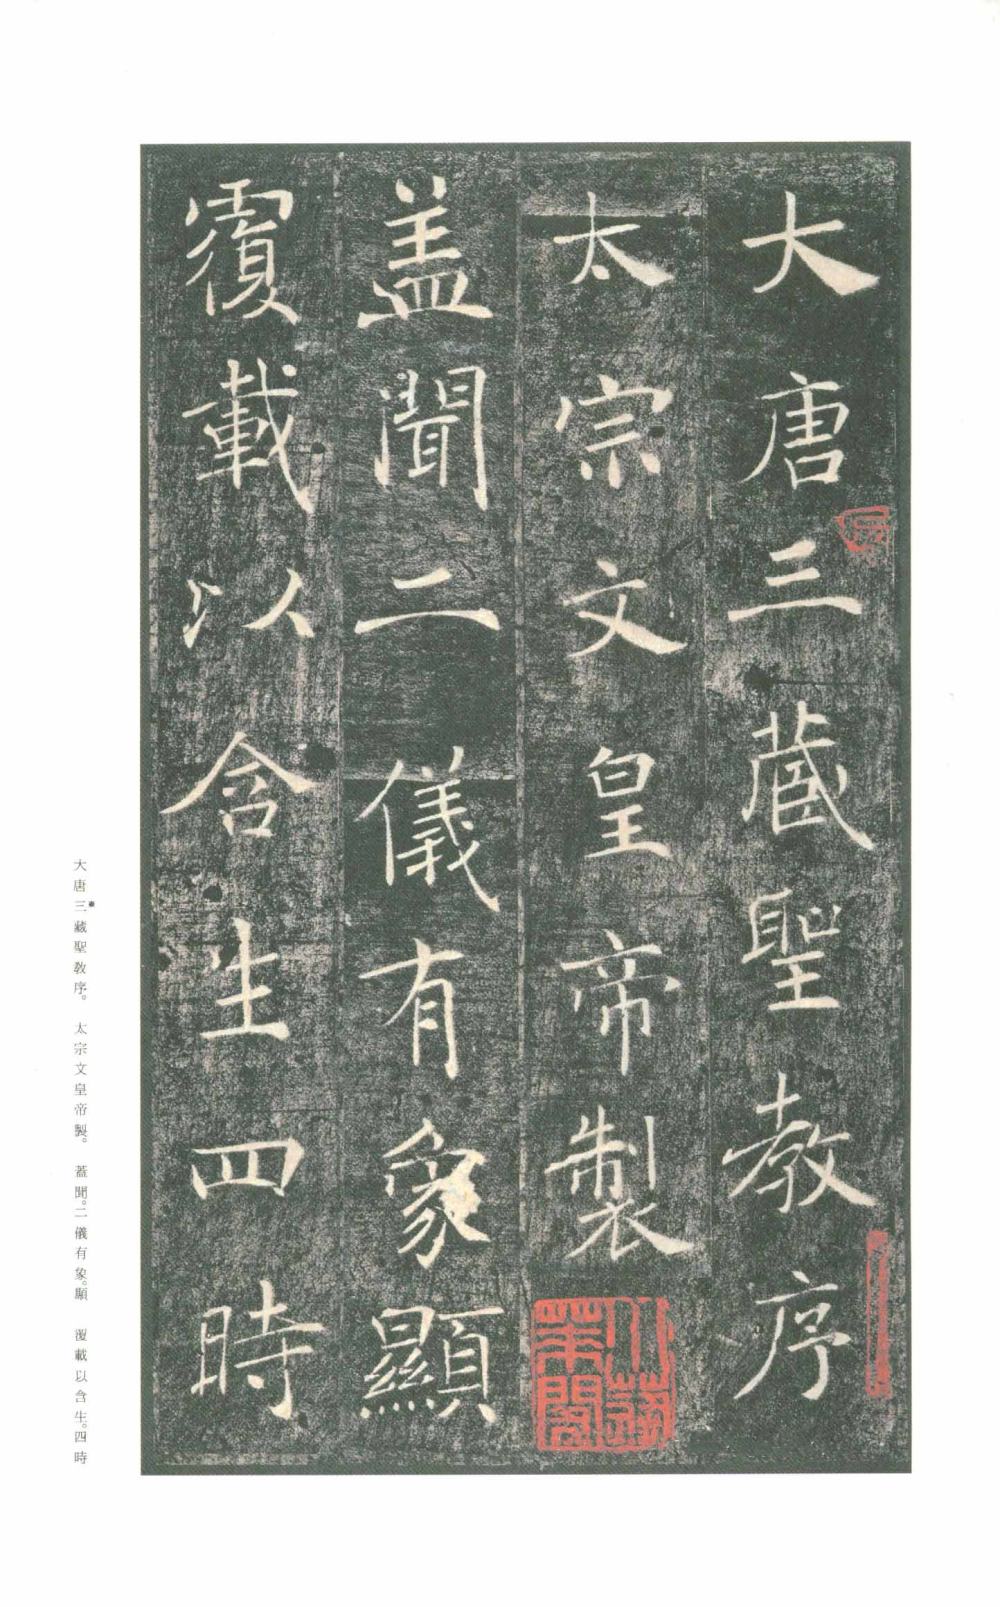 大唐三蔵聖教序
太宗文皇帝製
盖聞二儀有象顯
覆載以含生四時
大唐三藏聖教序。 太宗文皇帝製。 蓋聞。二儀有象。顯 覆載以含生。四時